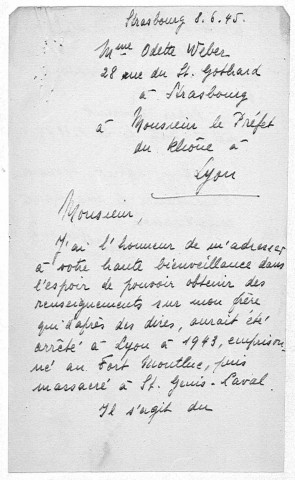 Strasbourg 8.6.45.
Mme Odette Weber
28 rue du St. Gothard
à Strasbourg
à Monsieur le Préfet
du Rhône à
Lyon
Monsieur,
J'ai l'honneur de m'adresser
à votre haute bienveillance dans
l'espoir de pouvoir obtenir des
renseignements sur mon frère
qui d'après des dires, aurait été
arrêté à Lyon à 1943, emprison-
né au Fort Montluc, puis
massacré à St. Genis-Laval.
Il s'agit du